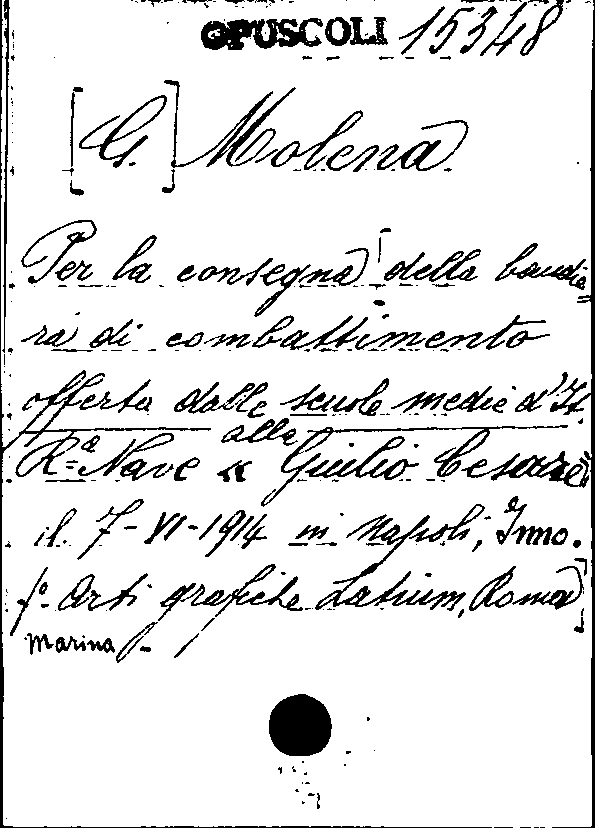 OPUSCOLI 15348
[G.] Molena
Per la consegna della bandie=
ra di combattimento
offerta dalle scuole medie d'It.
alla
R.ª Nave « Giulio Cesare »
il 7-VI-1914 in Napoli, Inno.
f.º Arti grafiche Latium, Roma]
Marina